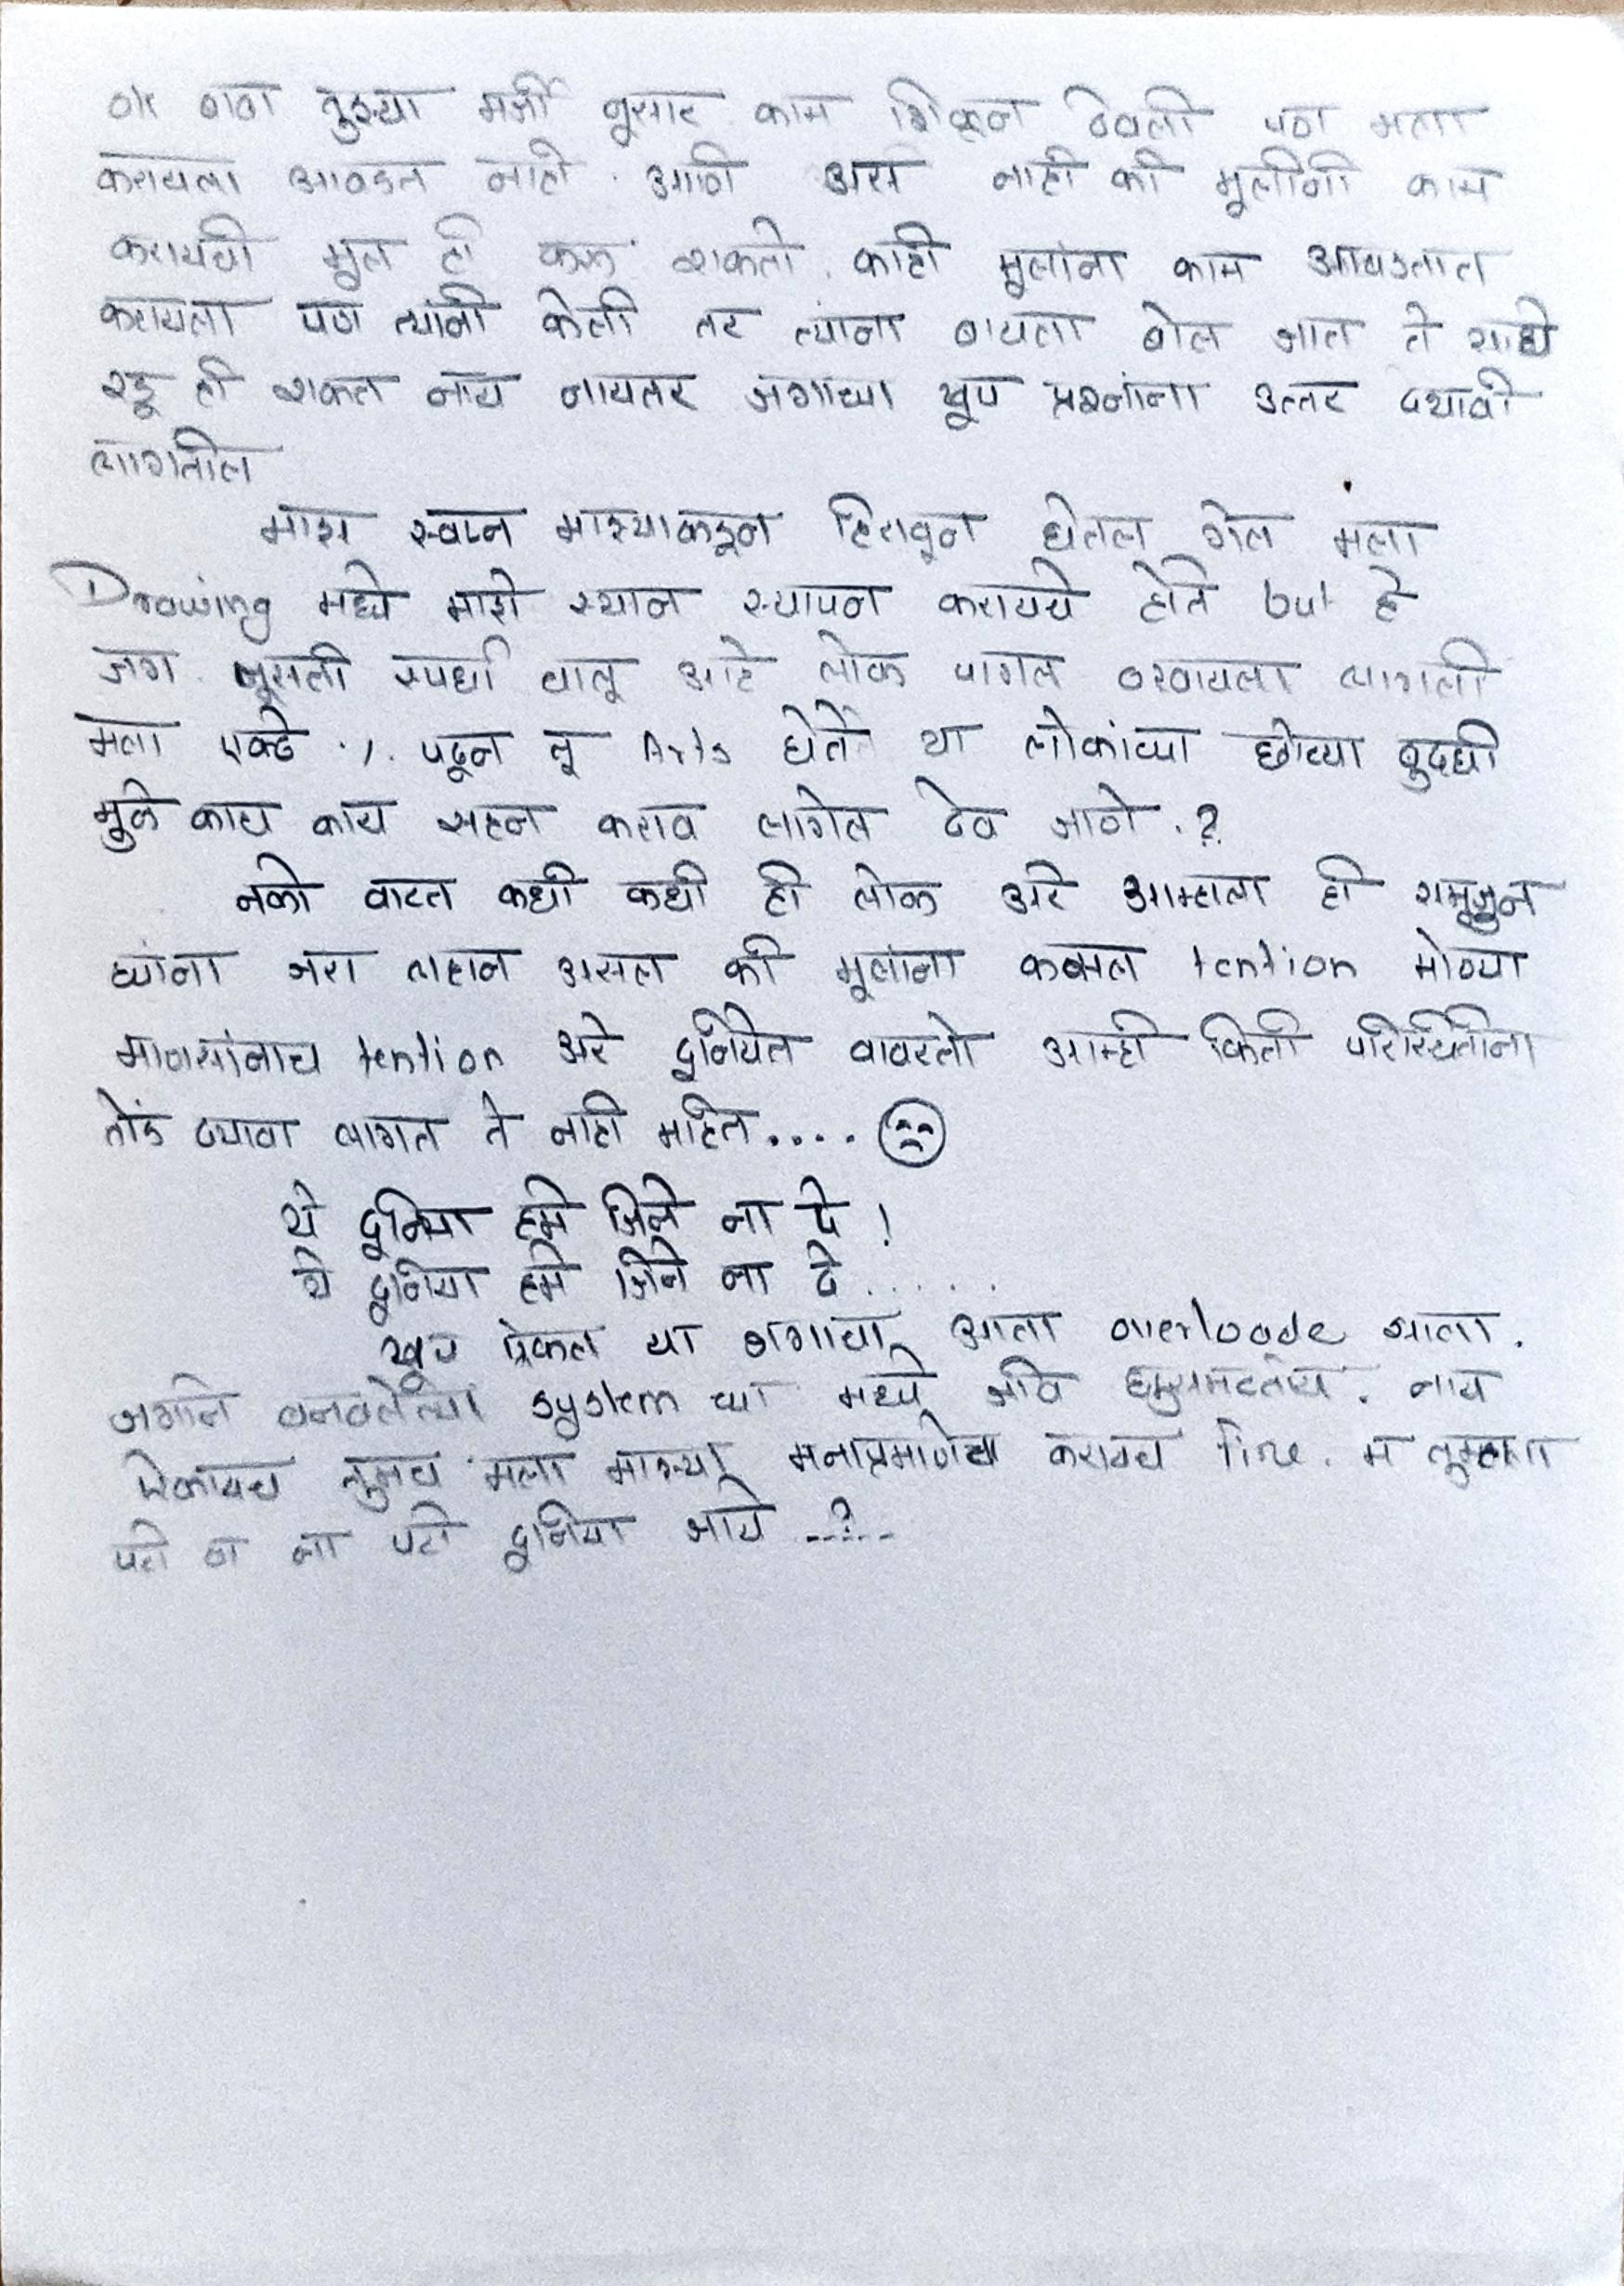 ok बाबा तुझ्या मर्जी नूसार काम शिकून ठेवली पण मला
करायला आवडत नाही. आणि असं नाही की मूलींनी काम
करायची मूल ही करू शकतो. काही मूलांना काम आवडतात
करायला पण त्यांनी केली तर त्यांना बायला बोल जात ते साधे
रडू ही शकत नाय नायतर जगाच्या खूप प्रश्नांना उत्तर दयावी
लागतील
माझ स्वप्न माझ्याकडून हिरावून घेतल गेल मला
Drawing मध्ये माझे स्थान स्थापन करायचे होते but हे
जग नूसती स्पर्धा चालू आहे लोक पागल ठरवायला लागली
मला एवढे %. पडून तू Arts घेते या लोकांच्या छोट्या बुदधी
मुळे काय काय सहन कराव लागेल देव जाणे.?
नको वाटत कधी कधी ही लोक अरे आम्हाला ही समूजुन
घ्यांना जरा लहान असल की मूलांना कसल tention मोठ्या
माणसांनाच tention अरे दूनियेत वावरतो आम्ही किती परिस्थितींना
तोंड दयावा लागत ते नाही माहित....
ये दूनिया हमे जिने ना दे !
ये दूनिया हमे जिने ना दे ......
खूप ऐकल या जगाचा आता overloade झाला.
जगाने बनवलेल्या system च्या मध्ये जीव घुसमटतोय. नाय
ऐकायच तुमच मला माझ्या मनाप्रमाणेच करायच fire. म तूम्हाला
पटो वा ना पटो दूनिया जाये ...?...